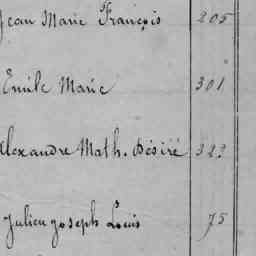 Jean Marie François 205
Emile Marie 301
Alexandre Math. Désiré 323
Julien Joseph Louis 75